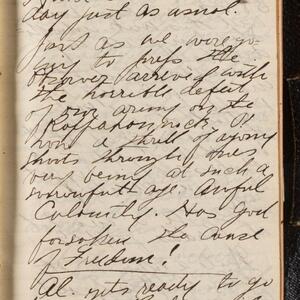 day just as usual.
Just as we were go-
ing to press the
Observer arrived with
the horrible defeit
of our army on the
Rappahannock, Oh
how a thrill of agony
shoots through ones
very being at such a
sorrowfull age. Awful
Calamity. Has God
forsaken the cause
of Freedom!
Al. gets ready to go